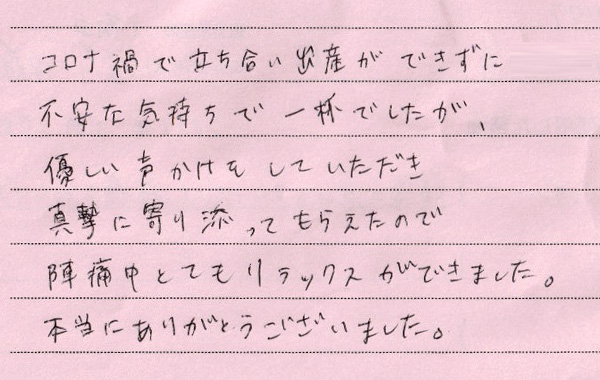 コロナ禍で立ち合い出産ができずに
不安な気持ちで一杯でしたが、
優しい声かけをしていただき
真摯に寄り添ってもらえたので
陣痛中とてもリラックスができました。
本当にありがとうございました。